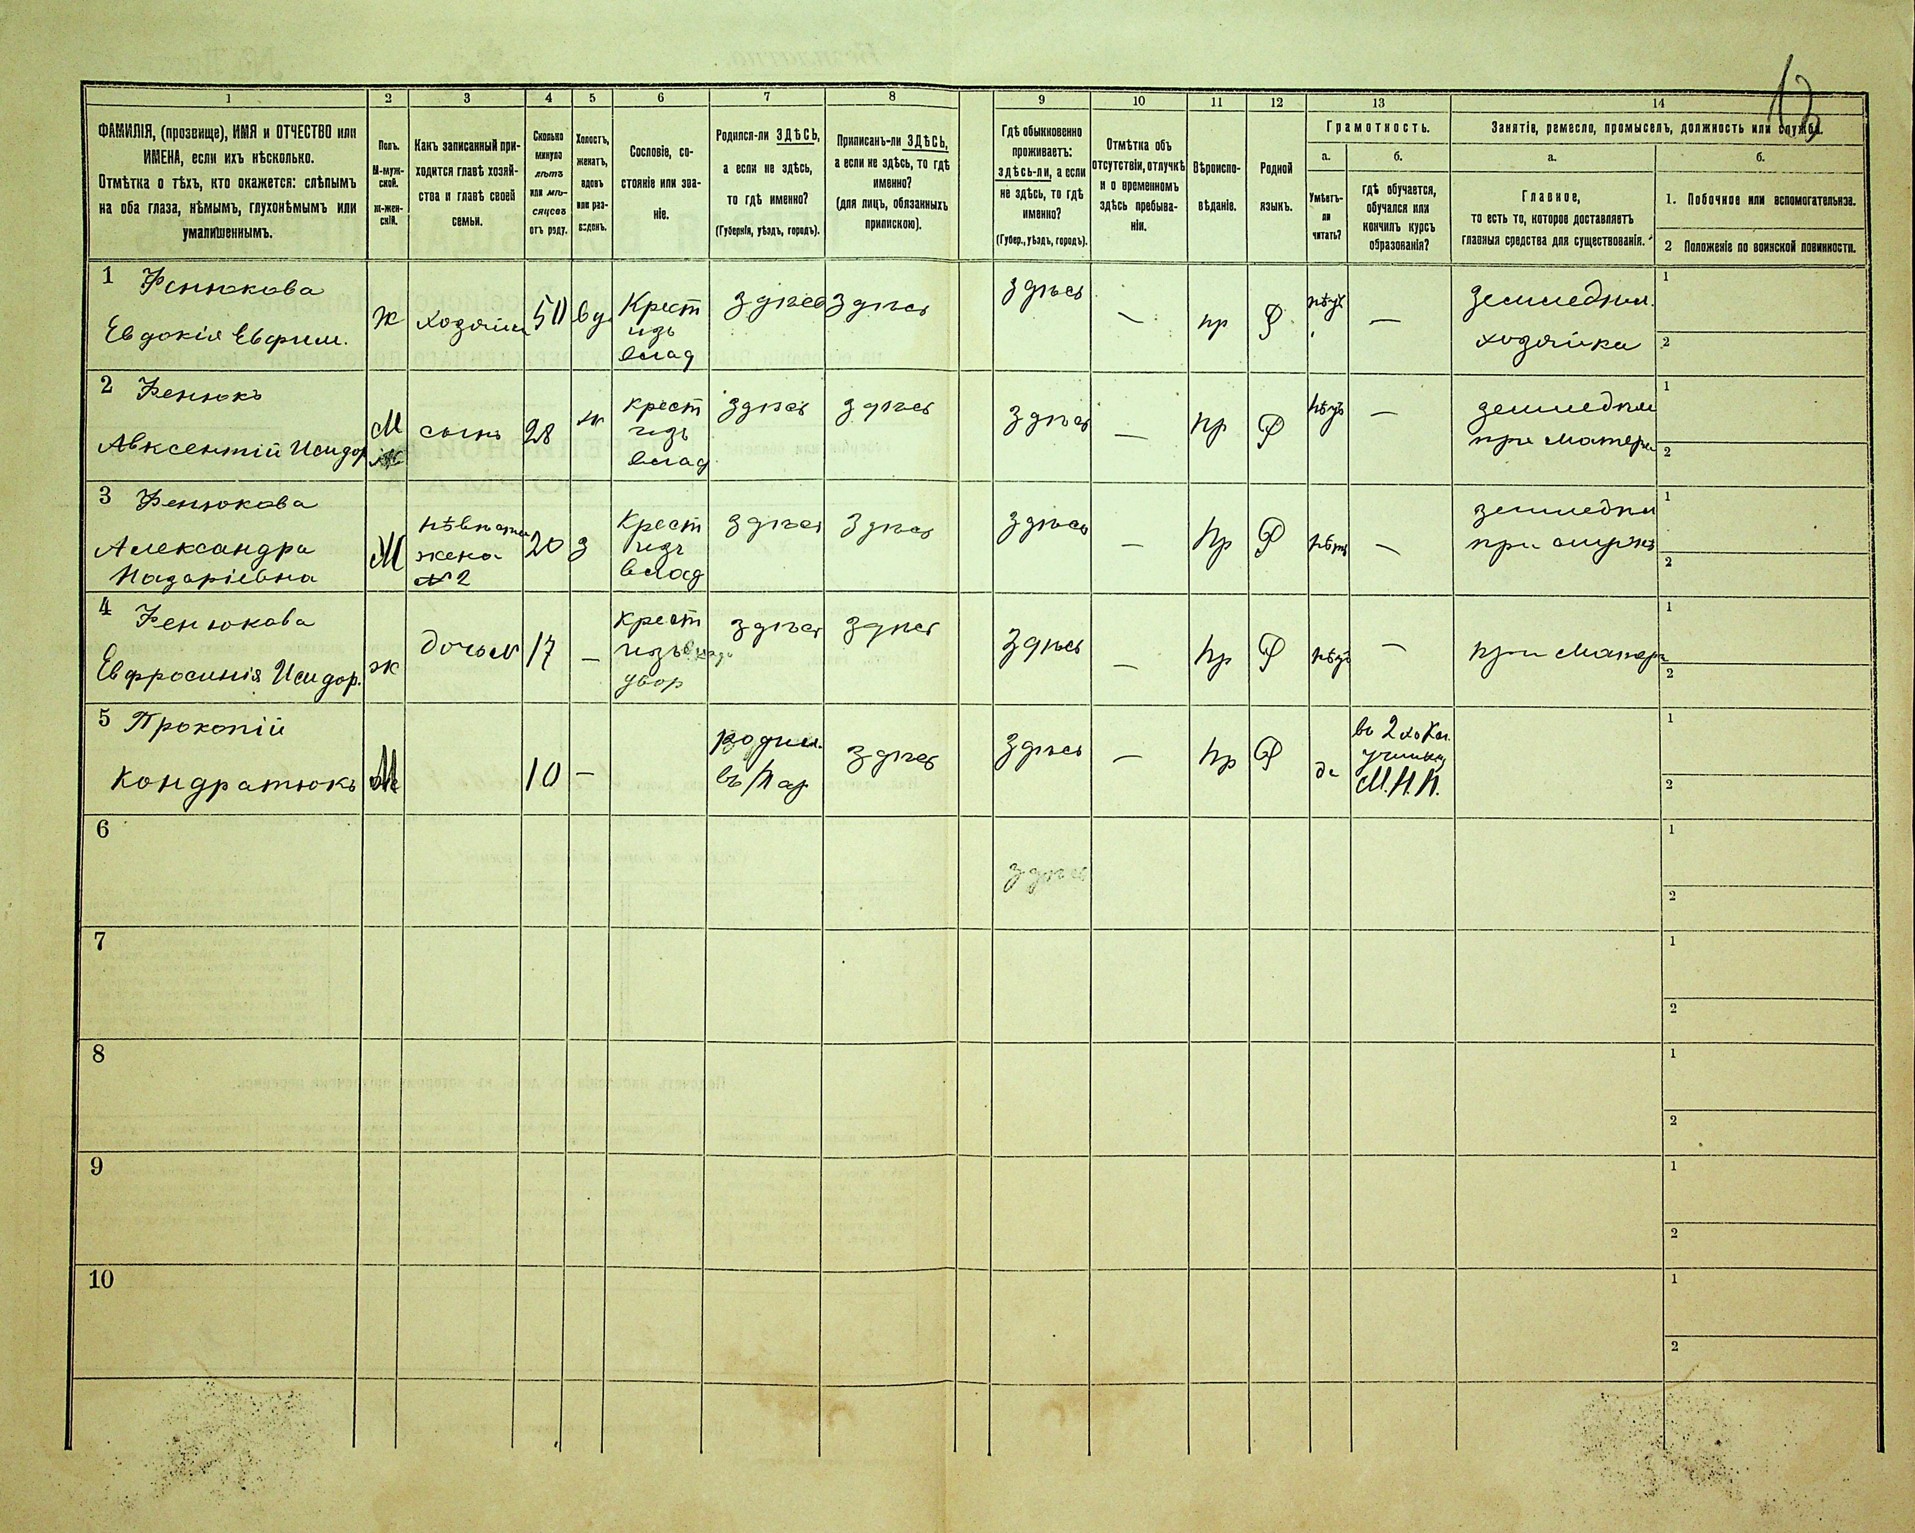 13
1 2 3 4 5 6 7 8 9 10 11 12 13 14
ФАМИЛІЯ, (прозвище), ИМЯ и ОТЧЕСТВО или
ИМЕНА, если ихъ нѣсколько.
Отмѣтка о тѣхъ, кто окажется: слѣпымъ
на оба глаза, нѣмымъ, глухонѣмымъ или
умалишеннымъ.
Полъ.
М-муж-
ской.
Ж-жен-
скій.
Какъ записанный при-
ходится главѣ хозяй-
ства и главѣ своей
семьи.
Сколько
минуло
лѣтъ
или мѣ-
сяцевъ
отъ роду.
Холостъ,
женатъ,
вдовъ
или раз-
веденъ.
Сословіе, со-
стояніе или зва-
ніе.
Родился-ли ЗДѢСЬ,
а если не здѣсь,
то гдѣ именно?
(Губернія, уѣздъ, городъ).
Приписанъ-ли ЗДѢСЬ,
а если не здѣсь, то гдѣ
именно?
(для лицъ, обязанныхъ
припискою).
Гдѣ обыкновенно
проживаетъ:
здѣсь-ли, а если
не здѣсь, то гдѣ
именно?
(Губер., уѣздъ, городъ).
Отмѣтка объ
отсутствіи, отлучкѣ
и о временномъ
здѣсь пребыва-
ніи.
Вѣроиспо-
вѣданіе.
Родной
языкъ.
Грамотность.
а.
Умѣетъ-
ли
читать?
б.
гдѣ обучается,
обучался или
кончилъ курсъ
образованія?
Занятіе, ремесло, промыселъ, должность или служба.
а.
Главное,
то есть то, которое доставляетъ
главныя средства для существованія.
б.
1. Побочное или вспомогательное.
2 Положеніе по воинской повинности.
1 Фенюкова
Евдокія Евфим.
ж
хозяйка
50
вд
Крест
изъ
влад
здѣсь
здѣсь
здѣсь
—
пр
Р
нѣтъ
—
земледѣл.
хозяйка
1
2
2 Фенюкъ
Авксентій Исидор
М
сынъ
28
ж
крест
изъ
влад
здѣсь
здѣсь
здѣсь
—
пр
Р
нѣтъ
—
земледѣл
при матери
1
2
3 Фенюкова
Александра
Назаріевна
М
невѣстка
жена
№2
20
з
Крест
изъ
влад
здѣсь
здѣсь
здѣсь
—
пр
Р
нѣтъ
—
земледѣл
при мужѣ
1
2
4 Фенюкова
Евфросинія Исидор.
ж
дочь
17
—
крест
изъ влад
двор
здѣсь
здѣсь
здѣсь
—
пр
Р
нѣтъ
—
при матери
1
2
5 Прокопій
Кондратюкъ
М
10
—
родил.
въ Пар
здѣсь
здѣсь
—
пр
Р
да
во 2хъ Кл.
училищ
М.Н.П.
1
2
6
здѣсь
1
2
7
1
2
8
1
2
9
1
2
10
1
2